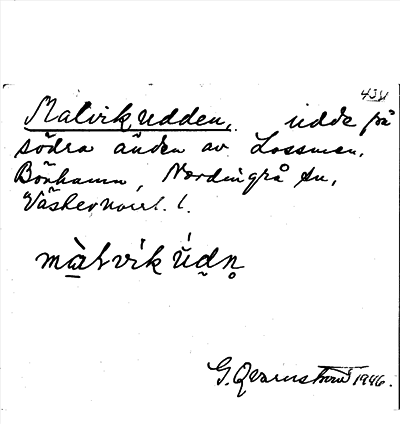 Malvikudden, udde på
södra änden av Lossmen,
Bönhamn, Nordingrå sn,
Västernorrl. l.
G. Qvarnström 1946.